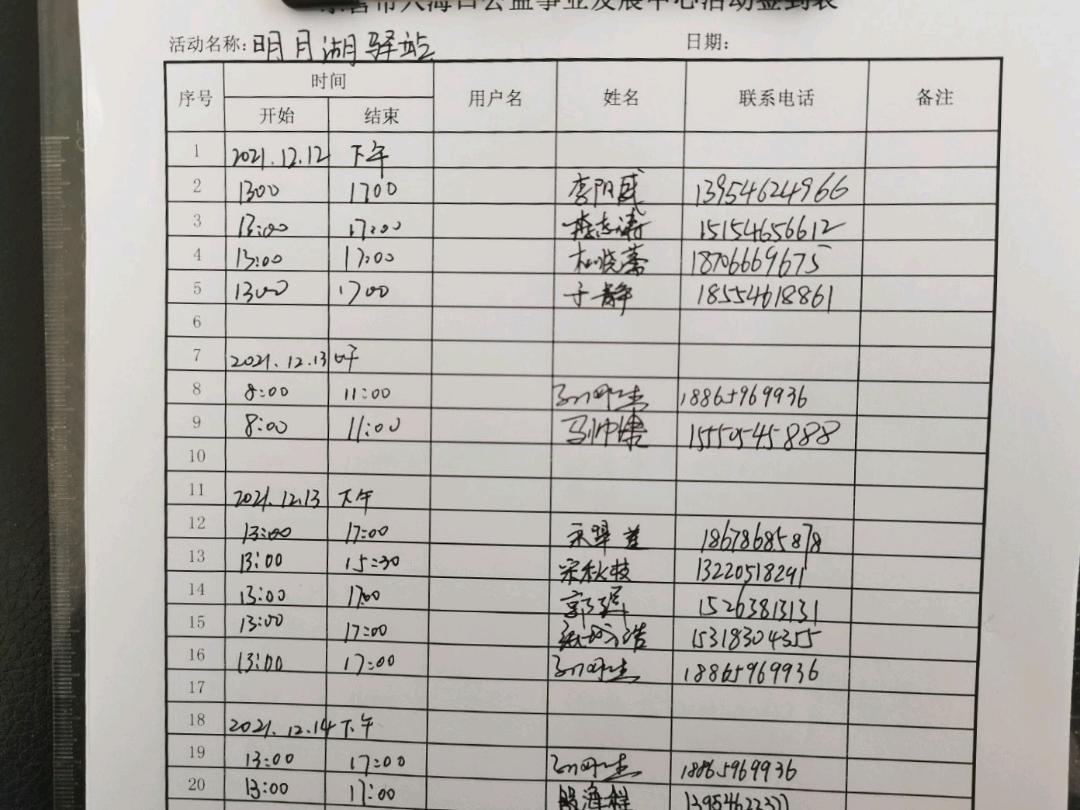 活动签到表
活动名称: 明月湖驿站 日期:
序号 时间 用户名 姓名 联系电话 备注
开始 结束
1 2021.12.12 下午
2 1300 1700 13954624966
3 13:00 17:00 15154656612
4 13:00 17:00 杜晓蕾 18706669675
5 1300 1700 于静 18554618861
6
7 2021.12.13
8 8:00 11:00 18865969936
9 8:00 11:00 15550545888
10
11 2021.12.13 下午
12 13:00 17:00 18678685878
13 13:00 15:30 宋秋枝 13220518291
14 13:00 1700 郭 15263813131
15 13:00 17:00 15318304355
16 13:00 17:00 18865969936
17
18 2021.12.14 下午
19 13:00 17:00 18865969936
20 13:00 17:00 海